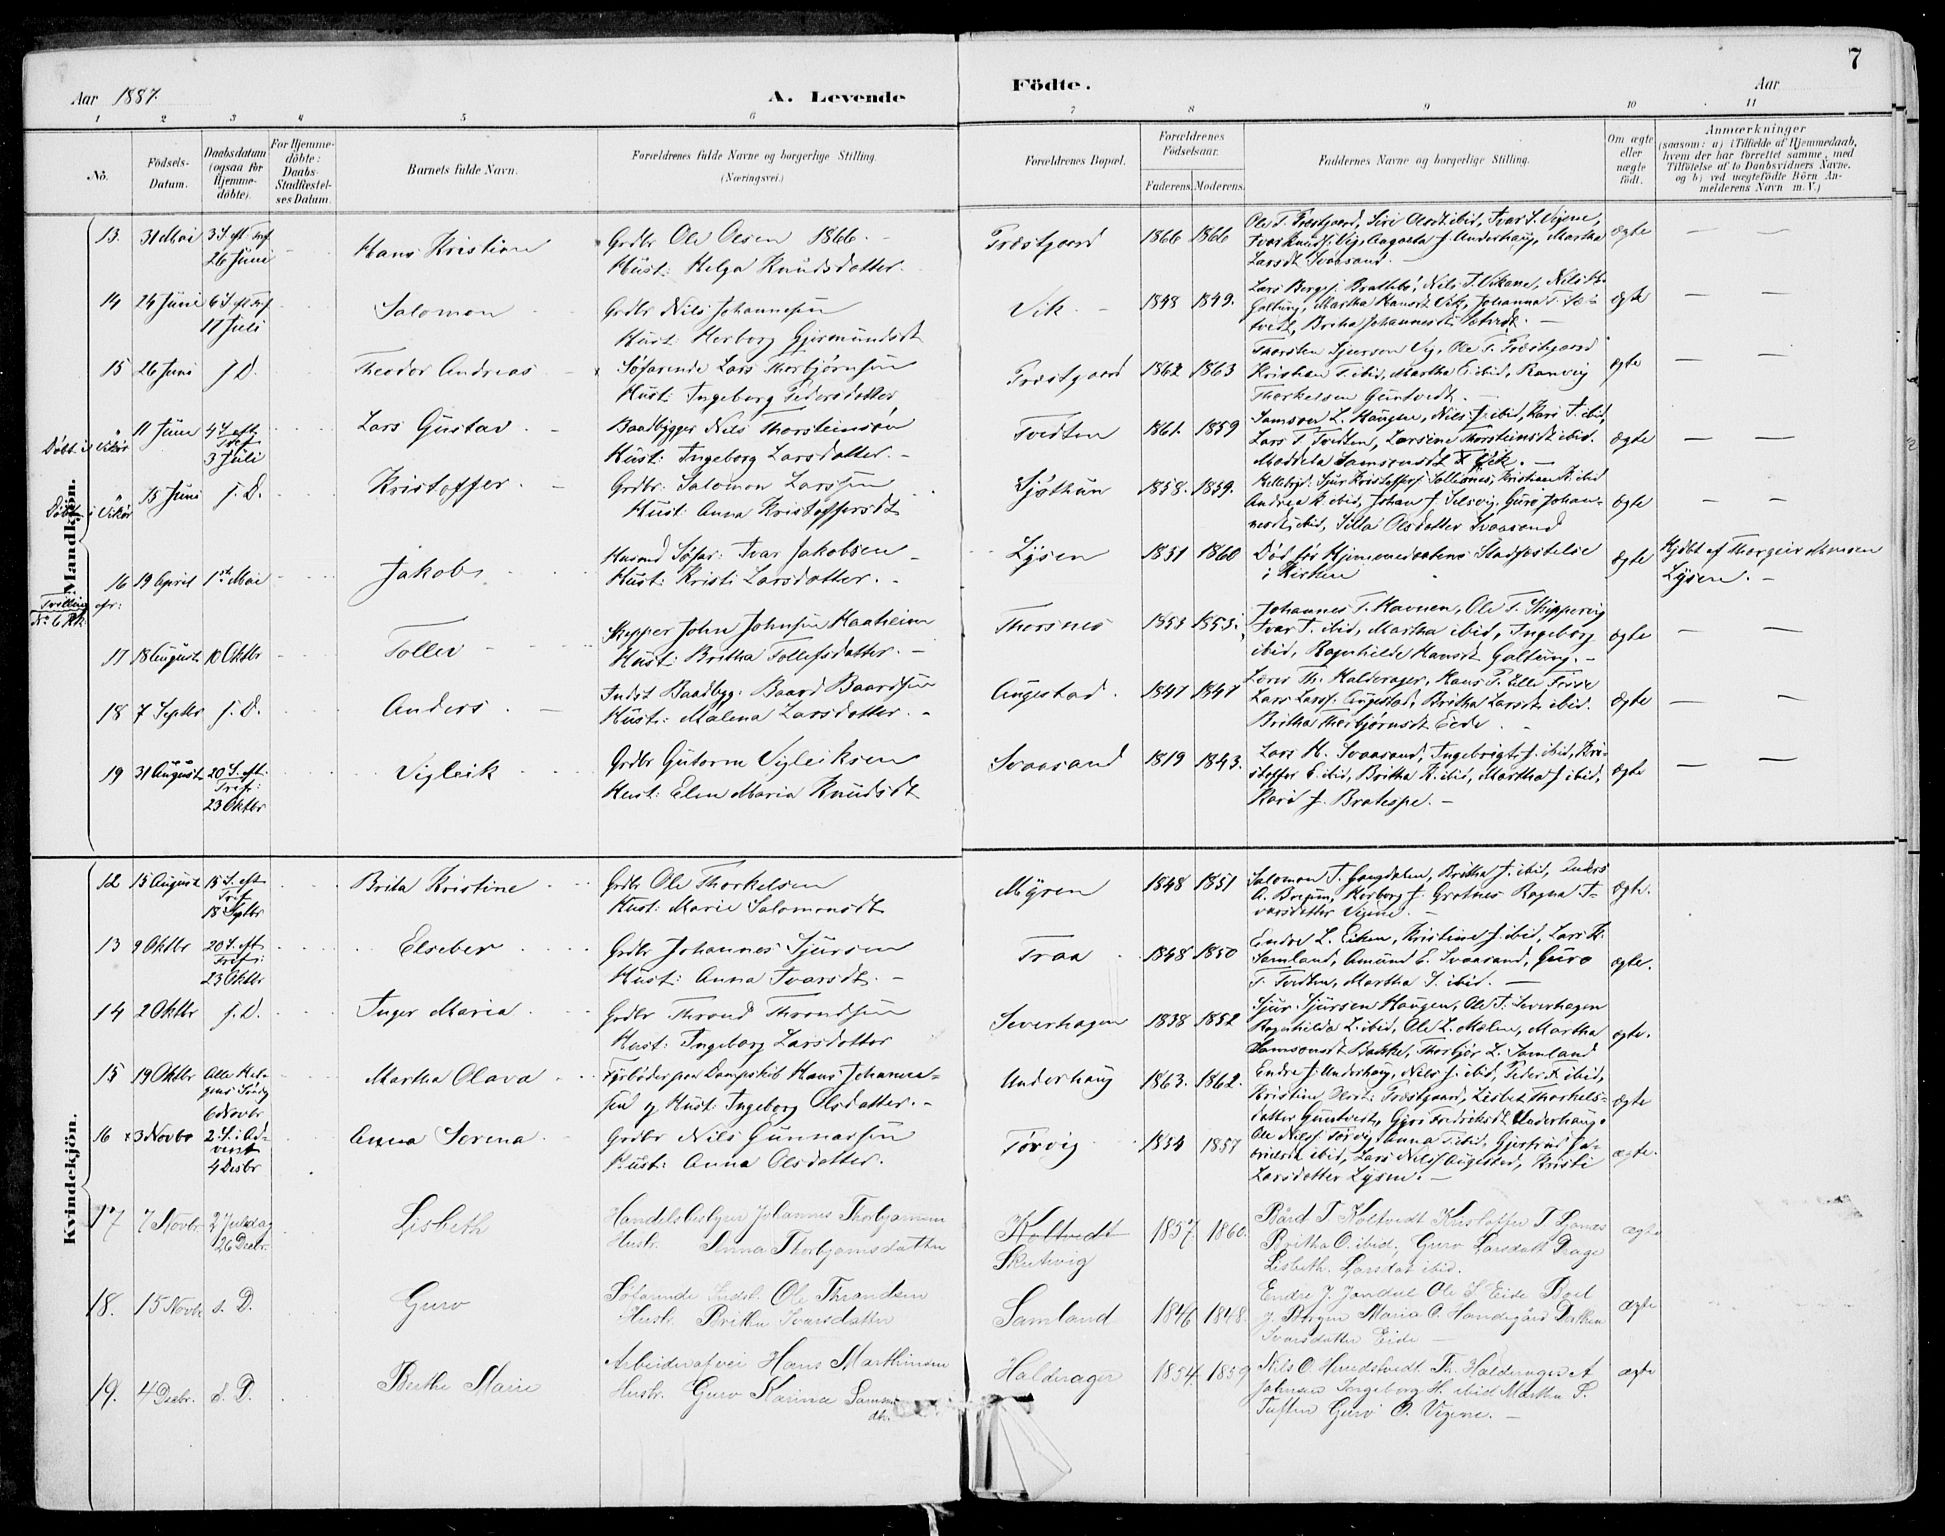 7
Aar 1887. A. Levende Födte. Aar
1 2 3 4 5 6 7 8 9 10 11
No. Födsels-Datum. Daabsdatum (ogsaa for Hjemme-döbte). For Hjemme-döbte: Daabs-Stadfæstel-ses Datum. Barnets fulde Navn. Forældrenes fulde Navne og borgerlige Stilling. (Næringsvei.) Forældrenes Bopæl. Forældrenes Födselsaar. Faderens. Moderens. Faddernes Navne og borgerlige Stilling. Om ægte eller uægte födt. Anmærkninger (saasom: a) i Tilfælde af Hjemmedaab, hvem der har forrettet samme, med Tilföielse af to Daabsvidners Navne, og b) ved uægtefödte Börn An-melderens Navn m. V.)
Mandkjön.
13. 31 Mai 3 S. eft. Tref. 26 Juni Hans Kristian
Grdbr Ole Olsen 1866. –
Hust: Helga Knudsdatter.
Præstgaard 1866 1866
Ole T. Præstgaard, Siri Olsdt ibid, Ivar S. Vigene,
Ivar Knuds. Vig, Aagaata J. Underhaug, Martha
Larsdt Svaasand.
ægte — —
14 24 Juni 6 S. eft Tref 17 Juli Salomon
Grdbr Nils Johannesen
Hust: Herborg Gjermundsdt
Vik. 1848 1849.
Lars Bergs. Brathbø, Nils T. Vikane, Nils H.
Galtung, Martha Hansdt Vik, Johanna
Britha Johannesdt
ægte — —
15 26 Juni f. D. Theodor Andreas
Søfarende Lars Thorbjørnsen
Hust: Ingeborg Pedersdatter
Præstgaard 1862 1863
Thorsten Sjurson Vig, Ole T. Præstgaard
Kristian T. ibid, Martha ibid, Ranvig
Thorkelsen Guntvedt. –
ægte — —
Døbt i Vikør 11 Juni 4 S. eft. Tref 3 Juli Lars Gustav
Baadbygger Nils Thorsteinsøn
Hust: Ingeborg Larsdatter. –
Tvedten 1861. 1859
Samson L. Haugen, Nils J. ibid, Kari T. ibid,
Lars T. Tvedten, Larsine Thorsteinsdt ibid.
Maddela Samsonsdt Vik. –
ægte — —
Døbt i Vikør 15 Juni f. D. Kristoffer.
Grdbr: Salomon Larssen
Hust: Anna Kristoffersdt
Sjøthun 1858. 1859.
Sjur Kristoffers Sollesnes, Kristian K. ibid
Andrea K. ibid, Johan J. Selsvig, Guro Johan-
nesdt ibid, Silla Olsdatter Svaasand
ægte – –
16 19 April 1st Mai Jakob
Tvilling efr: No 6 Kk.
Husmd Søfar: Ivar Jakobsen –
Hust: Kristi Larsdatter. –
Lysen 1851 1860
Død før Hjemmedaabens Stadfæstelse
i Kirken
ægte
Hjdbt af Thorgeir
Lysen. –
17 18 August 10 Oktbr Tollev
Skipper John Johnsen Haaheim
Hust: Britha Tollefsdatter. –
Thorsnes 1853 1853.
Johannes T. Havnen, Ole T. Skippervig
Ivar T. ibid, Martha ibid, Ingeborg
ibid, Ragnhilde Hansdt Galtung. –
ægte — —
18 7 Septbr f. D. Anders
Indst Baadbyg: Baard Baardsen
Hust: Malena Larsdatter. –
Augestad. 1847 1847
Lars Th. Halderager, Hans P.
Lars Larss. Augestad, Britha Larsdt ibid.
Britha Thorbjørnsdt Eide. –
ægte — —
19 31 August 20 S. eft. Tref: 23 Oktbr Vigleik
Grdbr Gutorm Vigleiksen
Hust: Elen Maria Knudsdt
Svaasand 1819 1843.
Lars H. Svaasand, Ingebrigt J. ibid, Kri-
stoffer E. ibid, Britha K. ibid, Martha J. ibid,
Kari J. Bratespe. –
ægte — —
Kvindekjön.
12 15 August 15 S. eft Tref. 18 Septbr Brita Kristine
Grdbr Ole Thorkelsen
Hust: Marie Salomonsdt
Myren 1848 1851
Salomon T. Gangdalen, Britha J. ibid, Anders
A. Bergen, Herborg J. Grotnes Ragna I-
varsdatter Vigene. –
ægte.
13 9 Oktbr 20 S. eft Tref: 23 Oktbr Elseber
Grdbr Johannes Sjursen
Hust: Anna Ivarsdt. –
Traa 1848 1850
Endre L. Eiken, Kristine J. ibid, Lars K.
Samland, Amund E. Svaasand, Guro
T. Tvedten, Martha S. ibid. –
ægte.
14 2 Oktbr f. D. Inger Maria
Grdbr Thrond Throndsen
Hust: Ingeborg Larsdatter
Severhagen 1838 1852
Sjur Sjursen Haugen, Ole T. Severhagen
Ragnhilda L. ibid, Ole L. Molen, Martha
Samsonsdt Bakke, Thorbjør L. Samland
ægte.
15 19 Oktbr Alle Hel-gens Søndg 6 Novbr Martha Olava
Fyrbøder paa Dampskib Hans Johanne-
sen og Hust: Ingeborg Olsdatter. –
Underhaug 1863. 1862.
Endre J. Underhaug, Nils J. ibid, Peder F. ibid,
Kristine Præstgaard, Lisbet Thorkels-
datter Guntvedt, Gyri Fredriksdt Underhaug.
ægte
16 3 Novbr 2 S. i Ad-vent 4 Desbr Anna Serena
Grdbr Nils Gunnarsen
Hust: Anna Olsdatter.
Tørvig 1834 1857
Ole Nilss Tørvig, Anna T. ibid, Gjertrud Ga-
brielsen ibid, Lars Nilss Augestad, Kristi
Larsdatter Lysen. –
ægte.
17 7 Novbr 2 Juledag 26 Decbr. Lisbeth
Handelsbestyrer Johannes Thorbjørnsen
Hustr. Anna Thorbjørnsdatter
Koltvedt
Skutevig
1857. 1860.
Bård T Koltvedt Kristoffer T Ljones
Britha O. ibid, Guro Larsdatt Drage
Lisbeth Larsdat ibid.
ægte
18. 15 Novbr s. D. Guro
Søfarende Indst. Ole Throndsen
Hustr. Britha Ivarsdatter
Samland 1846 1848.
Endre J. Ole S Eide Boel
J. Bergen Maria O. Handegård
Ivarsdatter Eide –
ægte
19. 4 Decbr. s. D. Berthe Marie
Arbeider af vei Hans Marthinsen
Hustr. Guro Karina Samsdtr.
Halderager 1854. 1859
Nils O. Th. Halderager A
Johnsen Ingeborg H. ibid Martha S.
Tuften Guro O. Vigene. –
ægte